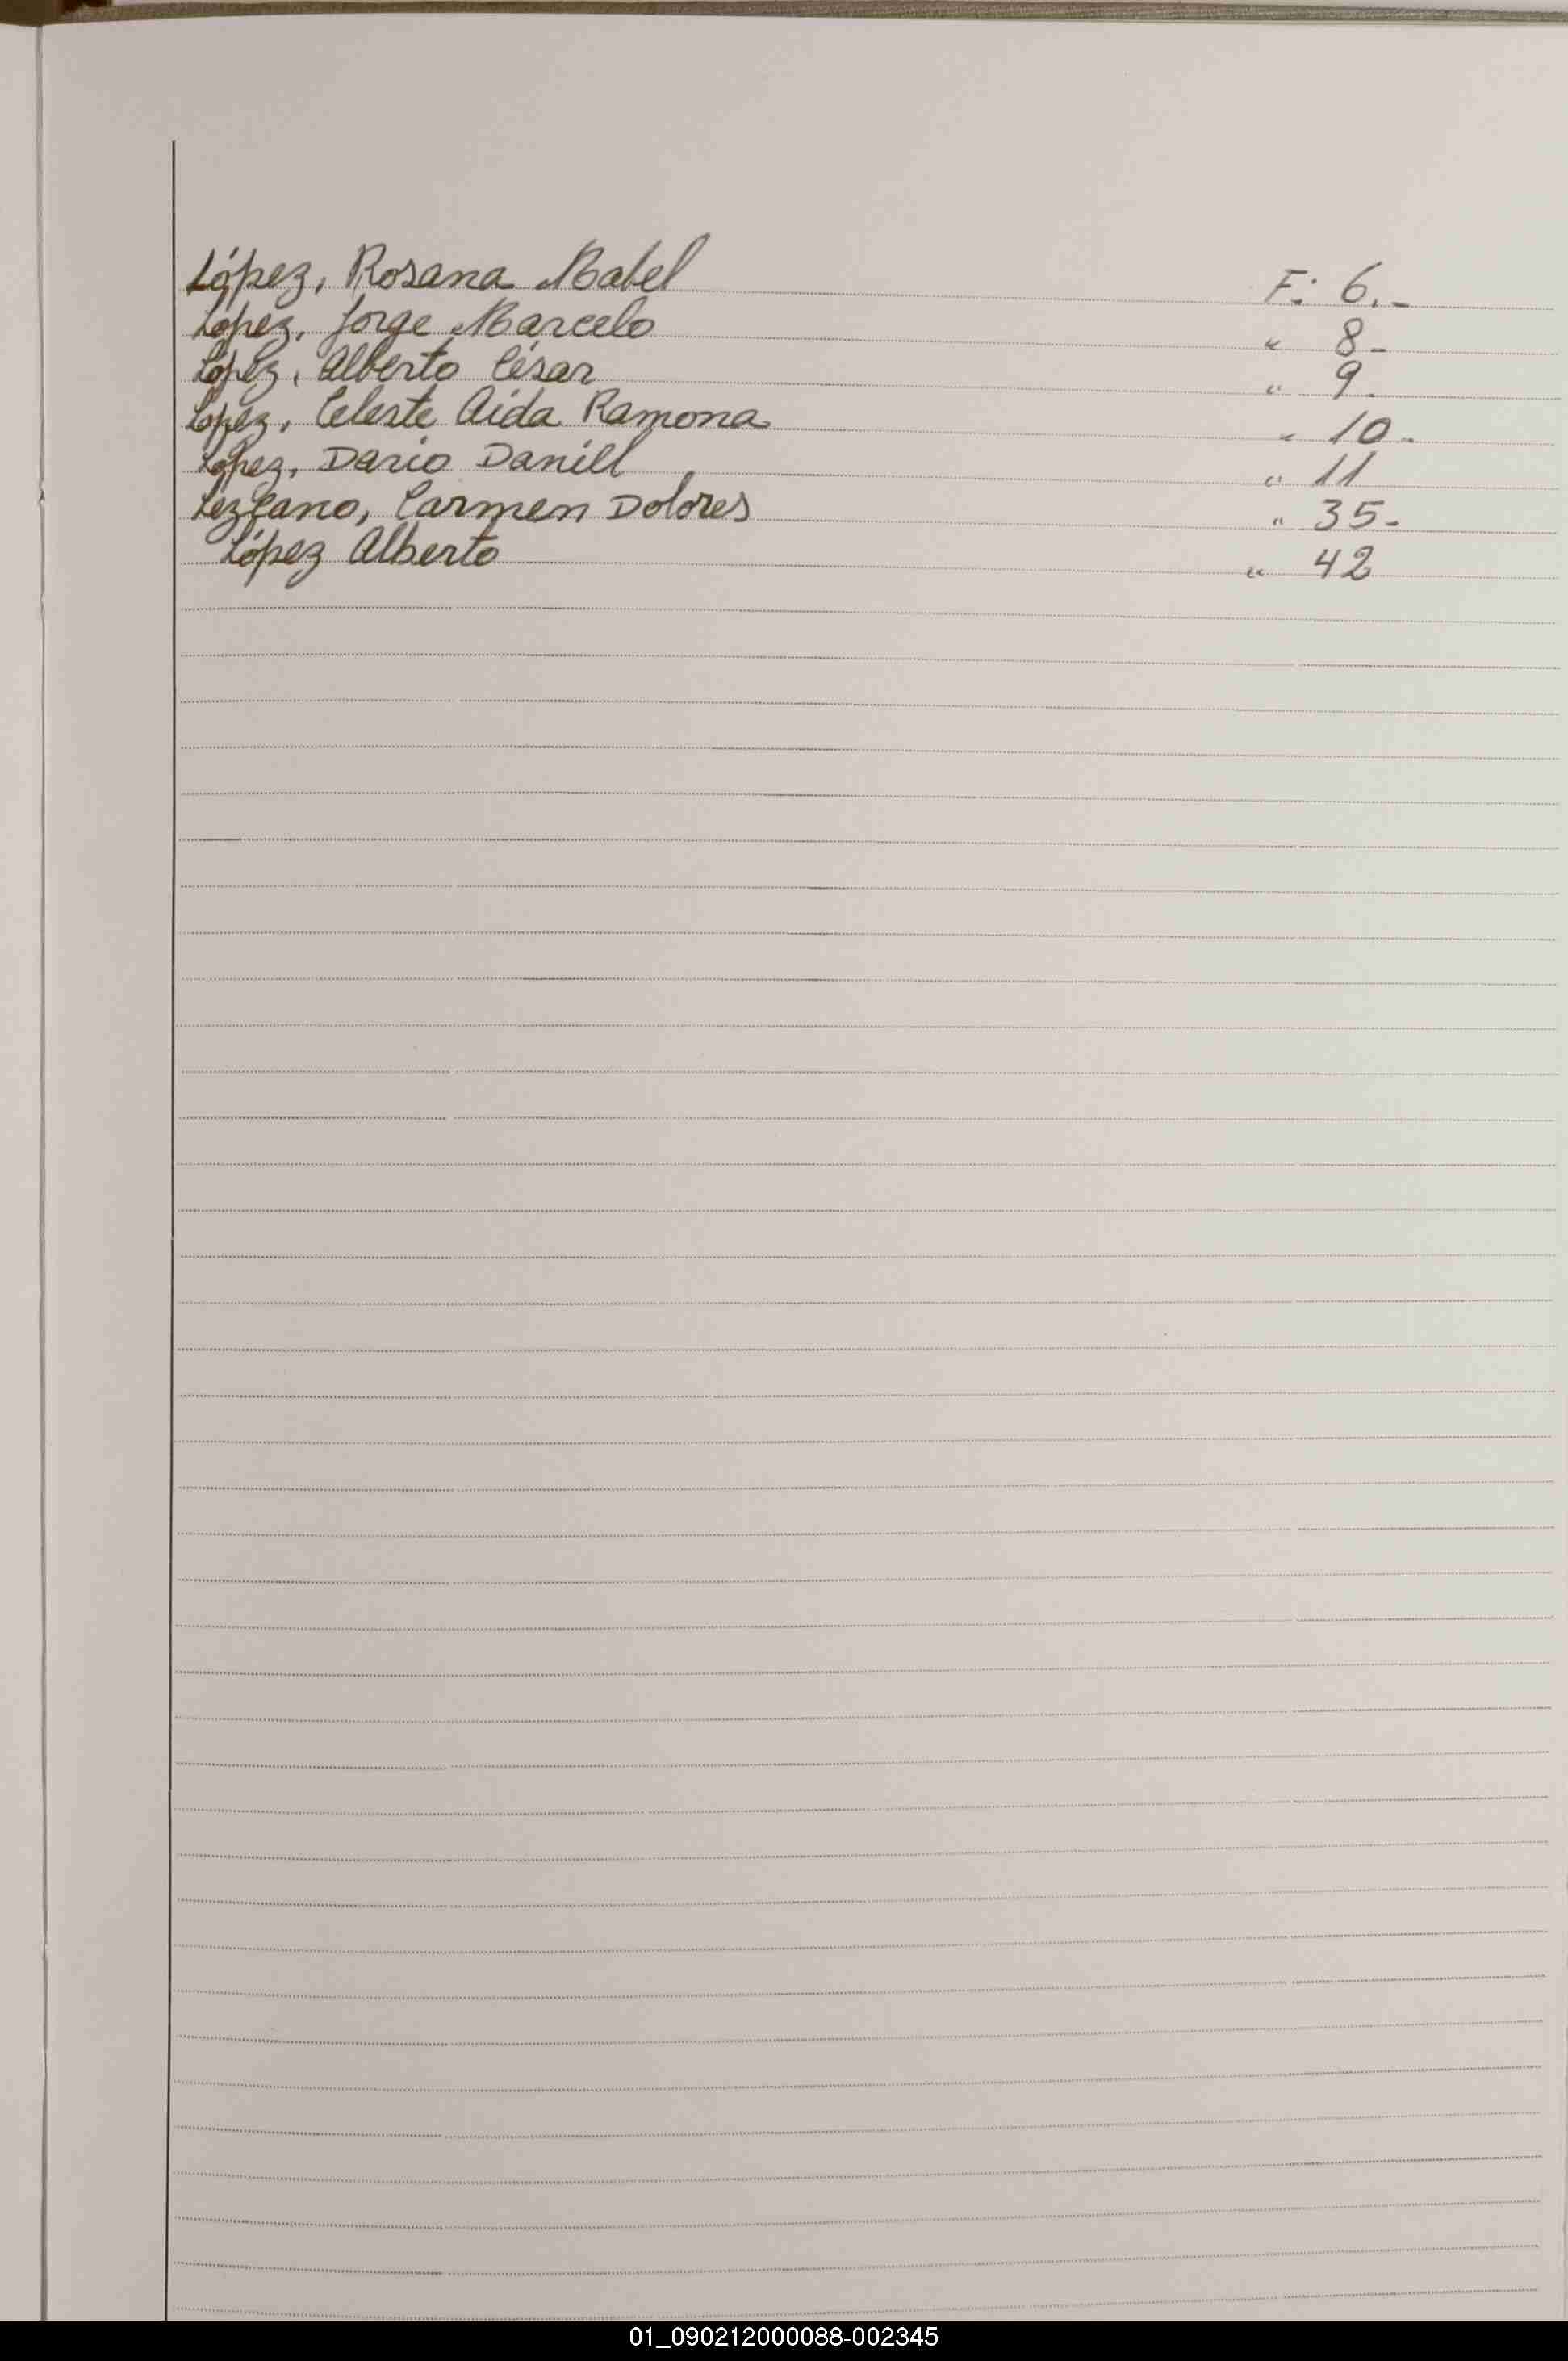 López, Rosana Mabel F: 6.-
López, Jorge Marcelo " 8-
López, Alberto César " 9.
López, Celeste Aida Ramona " 10.
López, Dario Daniel " 11
Lezcano, Carmen Dolores " 35-
López Alberto " 42
01_090212000088-002345